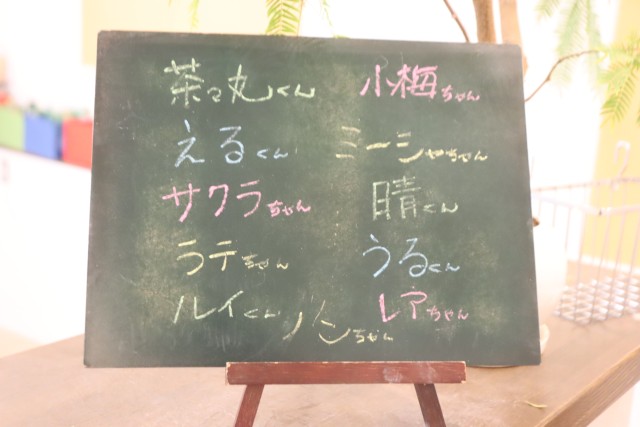 茶々丸くん 小梅ちゃん
えるくん ミーシャちゃん
サクラちゃん 晴くん
ラテちゃん うるくん
ルイくん ノンちゃん レアちゃん